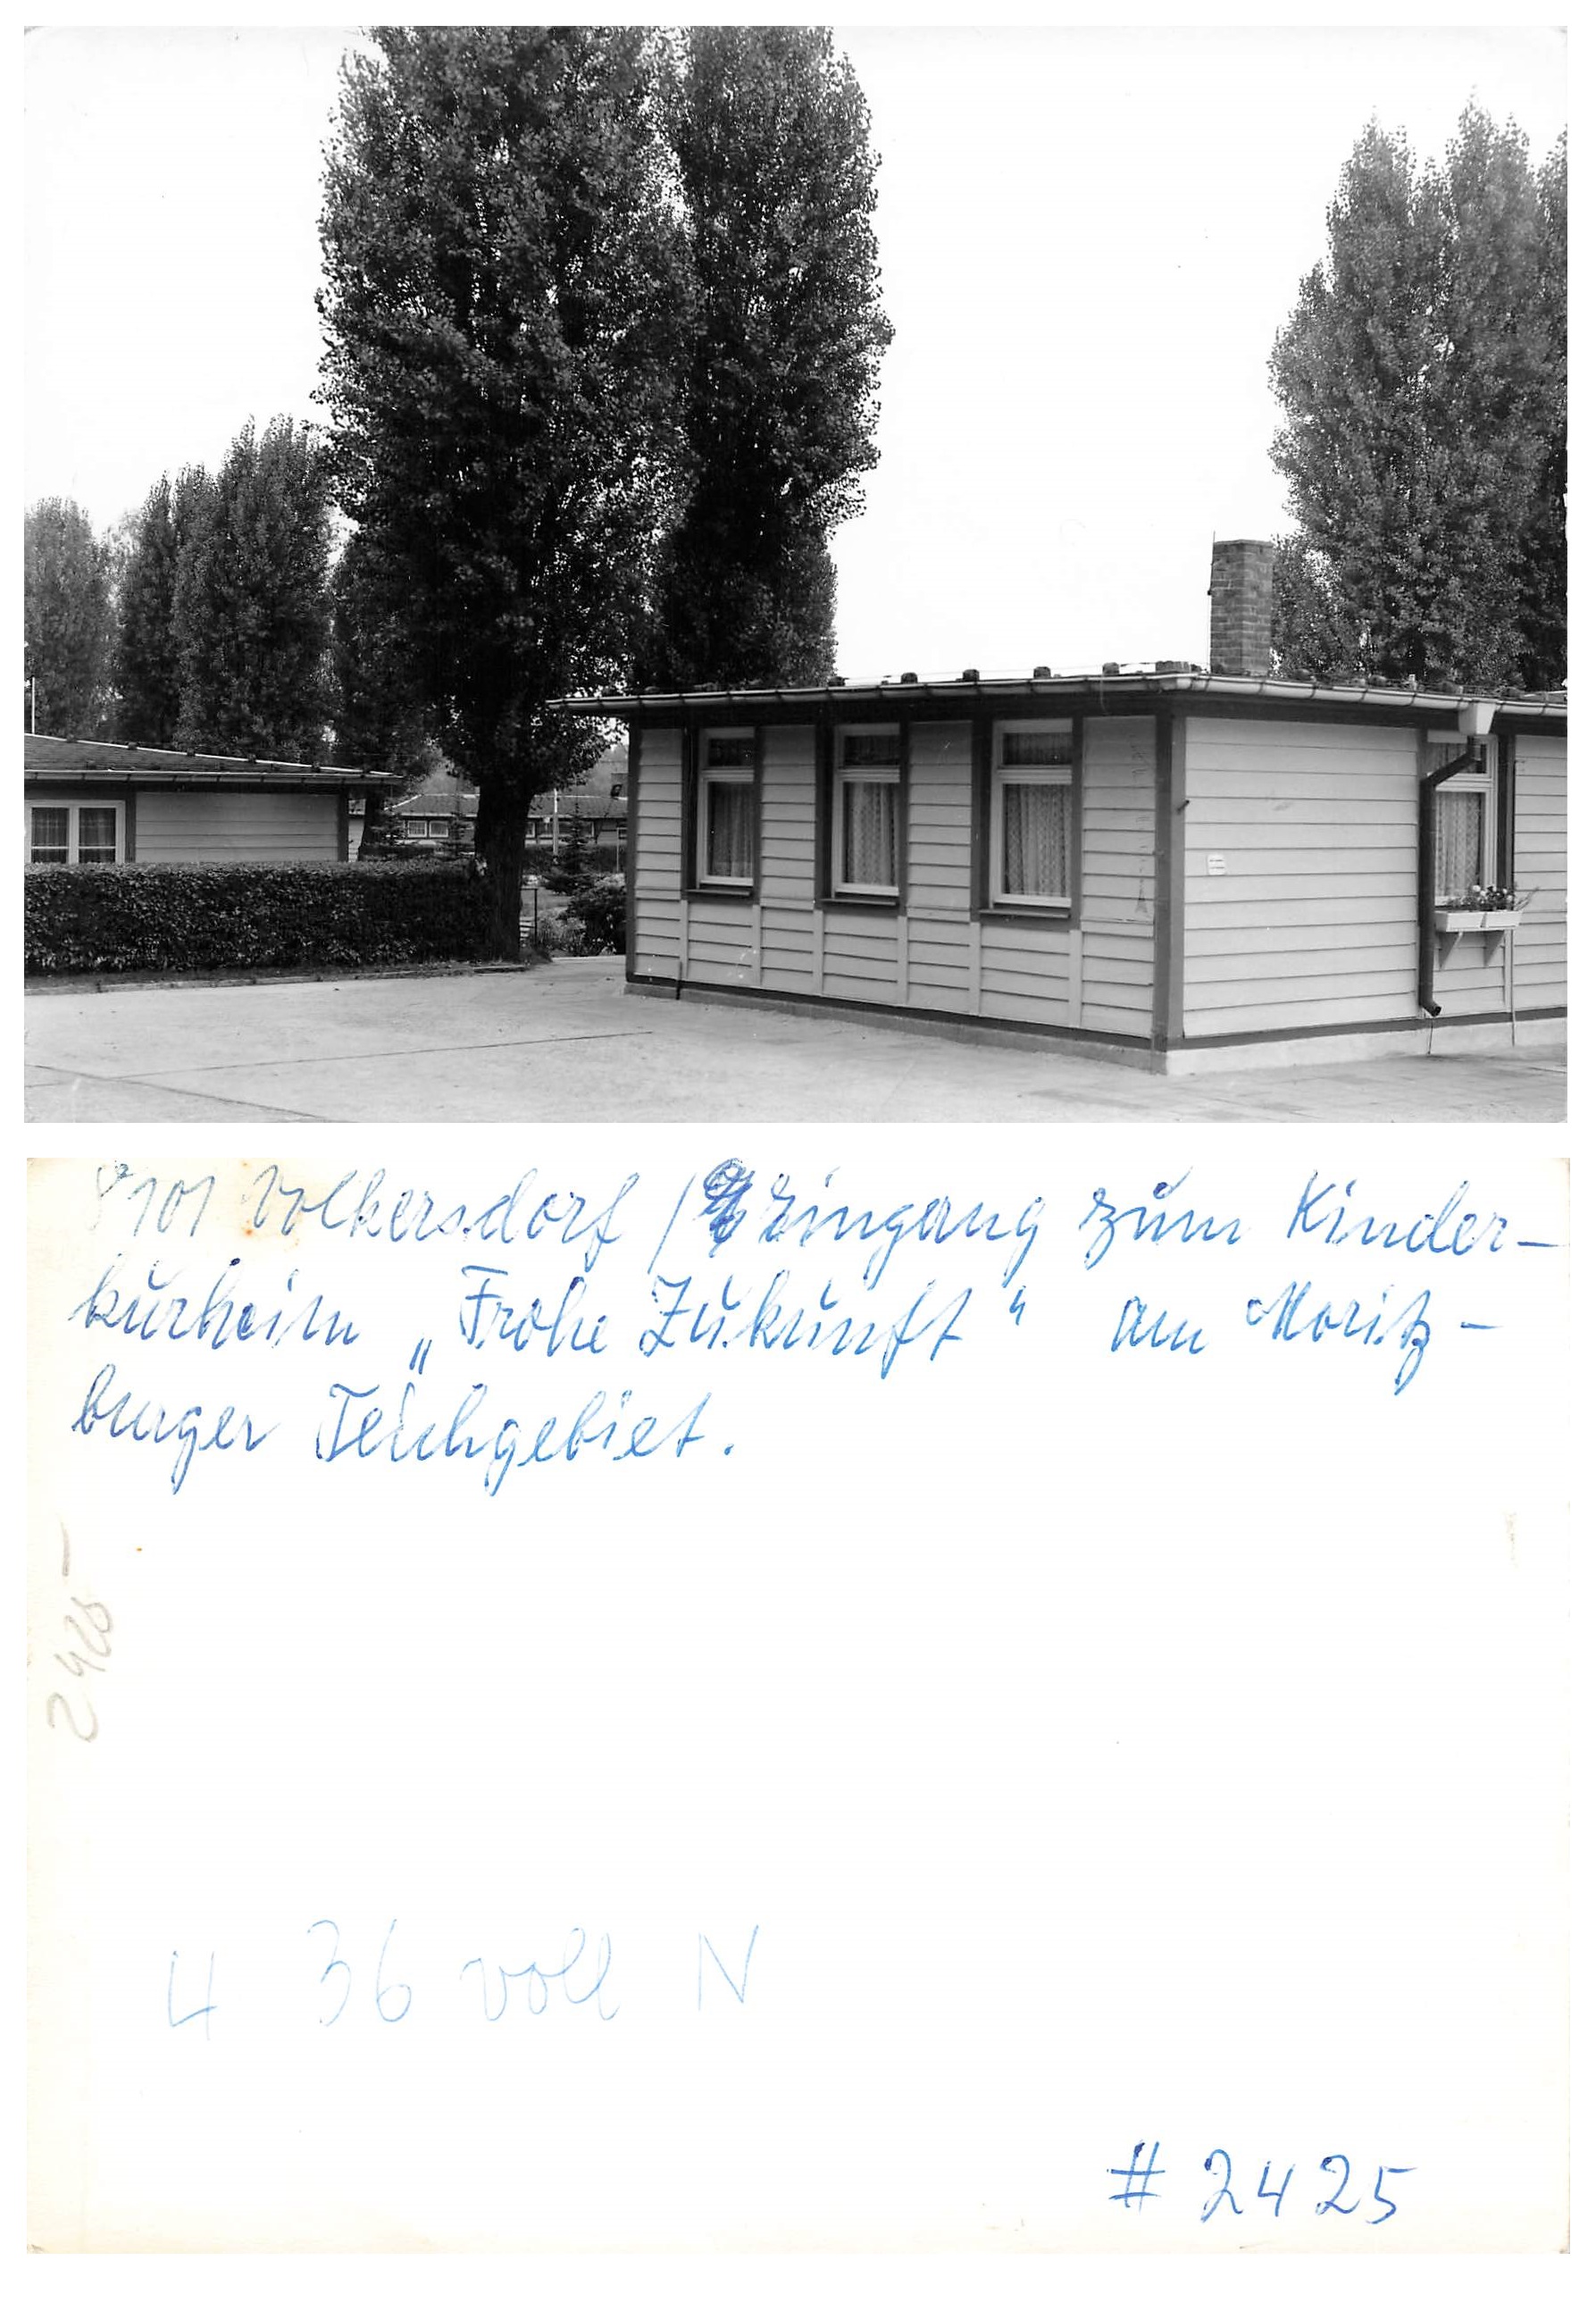 8101 Volkersdorf / Eingang zum Kinder-
kurheim „Frohe Zukunft“ am Moritz-
burger Teichgebiet.
2425
4 36 voll N
# 2425